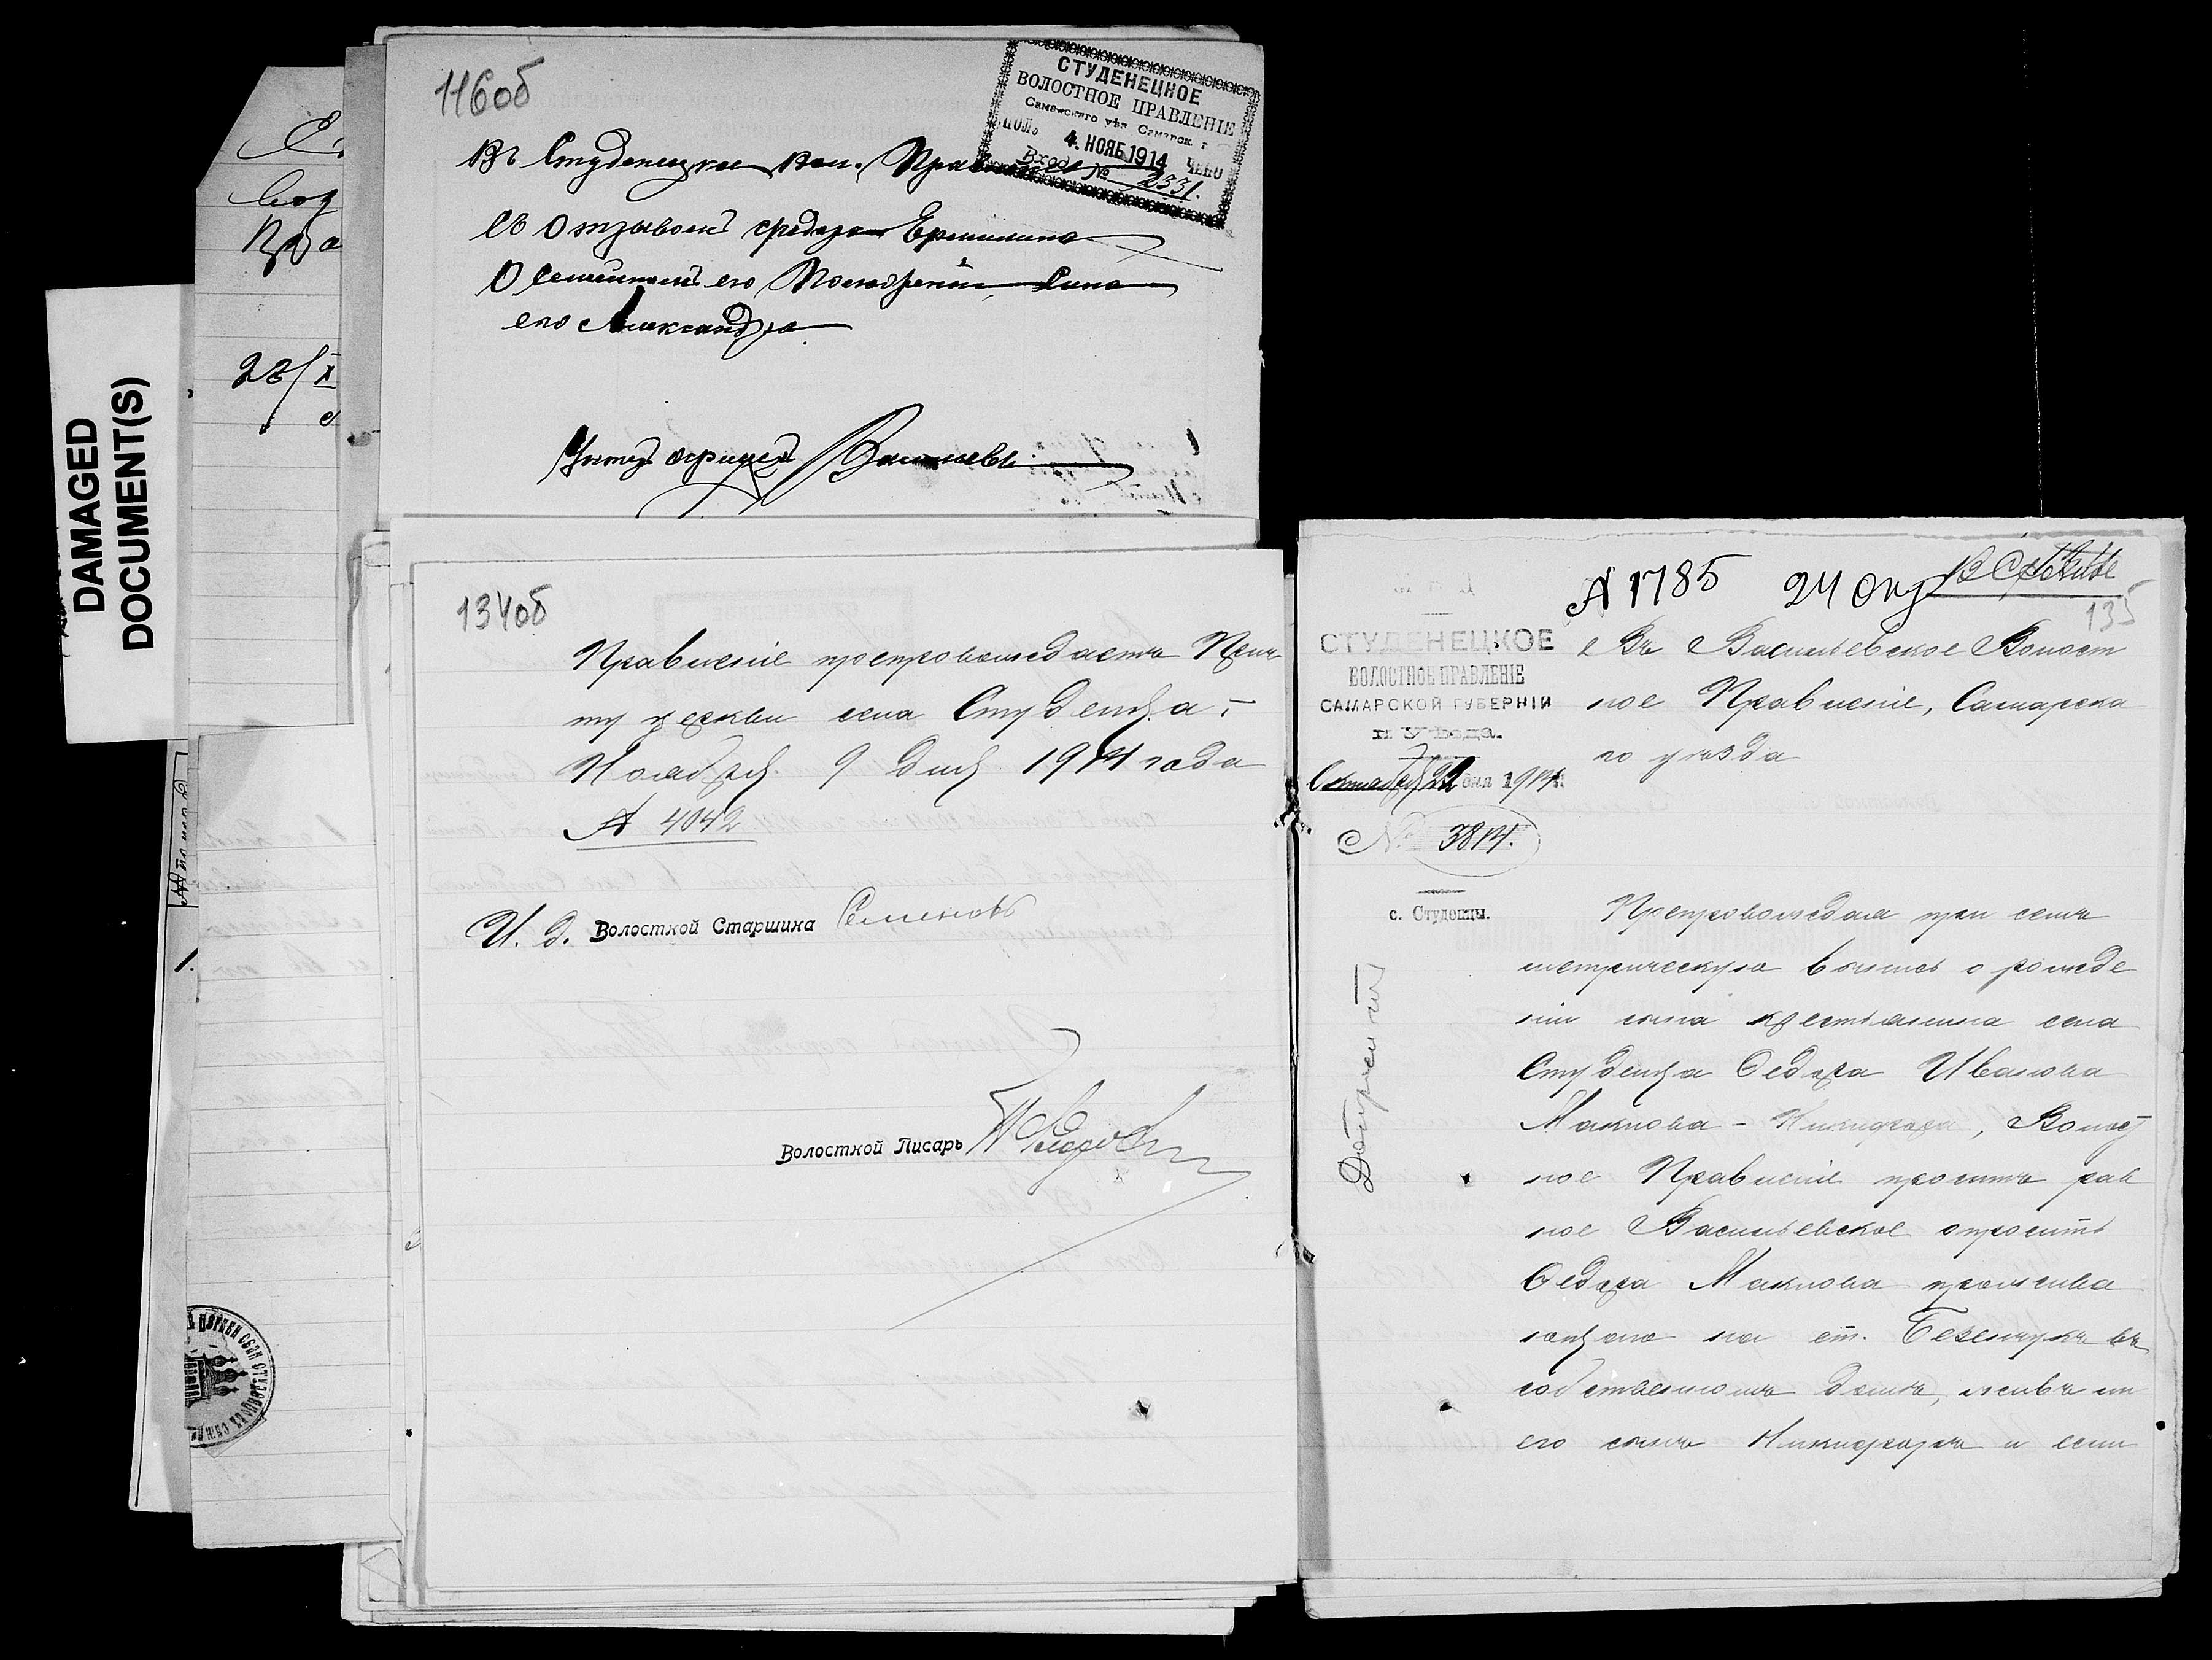 DAMAGED
DOCUMENT(S)
22/X
116об
СТУДЕНЕЦКОЕ
ВОЛОСТНОЕ ПРАВЛЕНІЕ
Самарскаго уѣз. Самарск. г.
4. НОЯБ. 1914
Вход. № 2331.
Въ Студенецкое Вол. Правленіе
Съ Отзывомъ Федора
О Семейномъ его сына
его Александра
Васильевъ
134об
Правленіе препровождаетъ Прич
ту церкви села Студенца,-
Ноября 9 дня 1914 года
№ 4042
И. д. Волостной Старшина Семеновъ
Волостной Писарь
№ 1785 24 Окт
135
СТУДЕНЕЦКОЕ
ВОЛОСТНОЕ ПРАВЛЕНІЕ
САМАРСКОЙ ГУБЕРНІИ
и Уѣзда.
Октября 22 дня 1914 г.
№ 3814.
с. Студенцы.
Въ Васильевское Волост
ное Правленіе, Самарска
го уѣзда
Препровождая при семъ
метрическую выпись о рожде
ніи сына крестьянина села
Студенца Федора Иванова
Маклова - Никифора, Волост
ное Правленіе проситъ рав
ное Васильевское опросить
Федора Маклова прожива
ющаго на ст. Безенчукъ въ
собственномъ домѣ, живъ ли
его сынъ Никифоръ и если